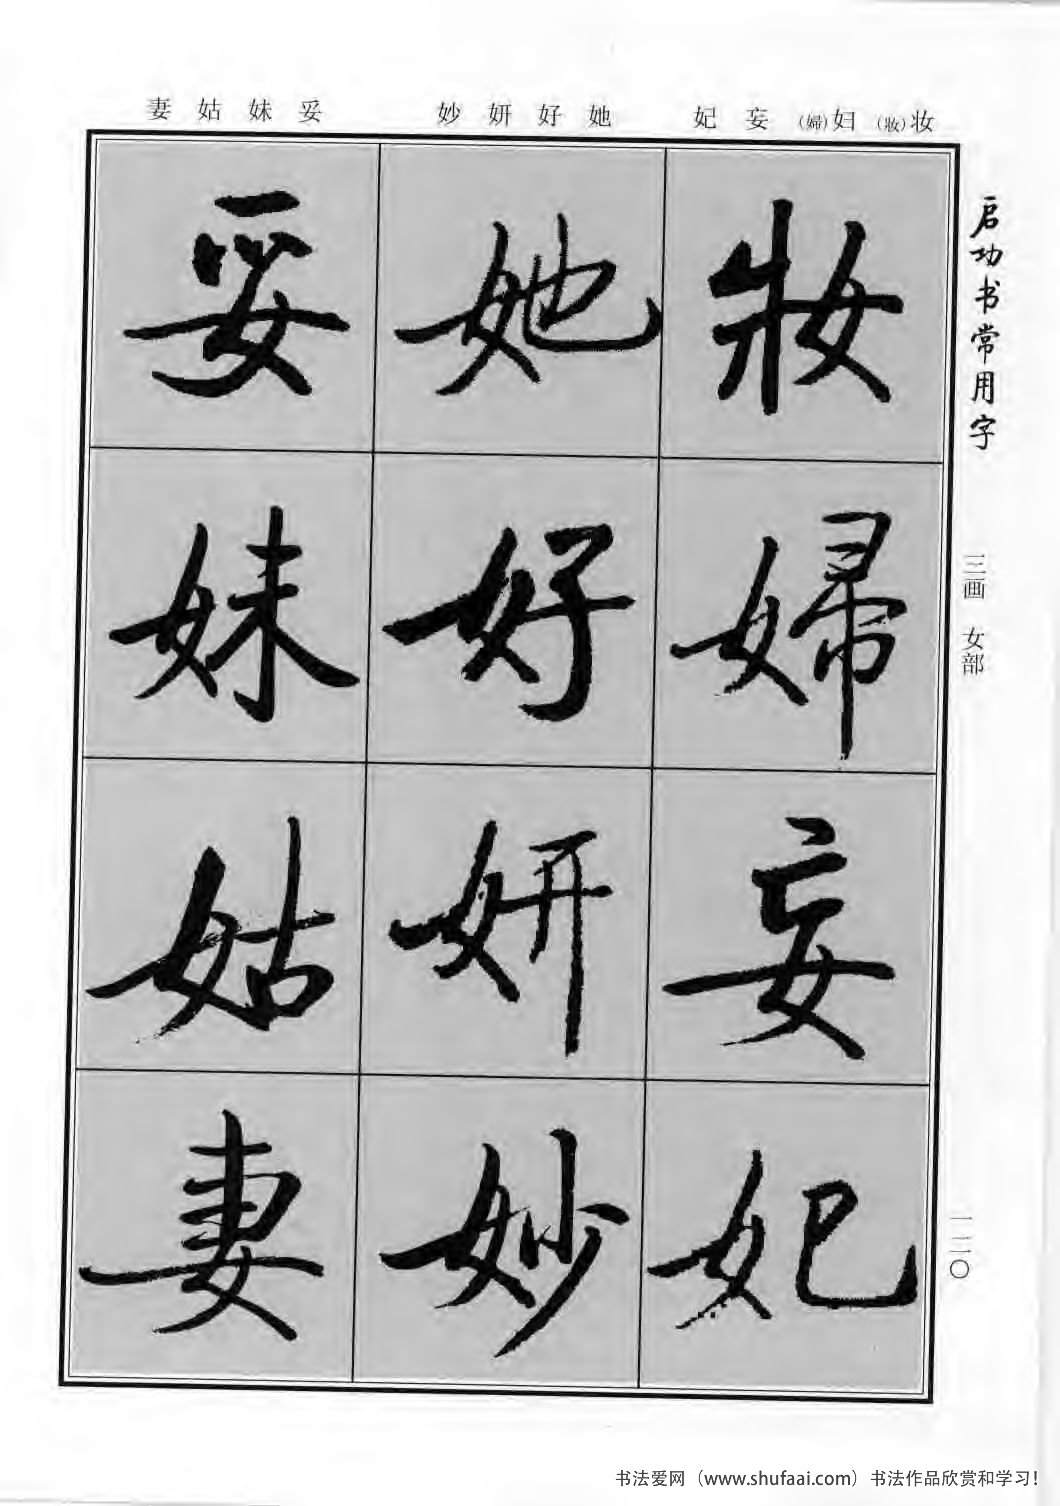 妻姑妹妥 妙妍好她 妃妄(婦)妇(妝)妆
启功书常用字
三画 女部
一二〇
妝
婦
妄
妃
她
好
妍
妙
妥
妹
姑
妻
书法爱网（www.shufaai.com）书法作品欣赏和学习！